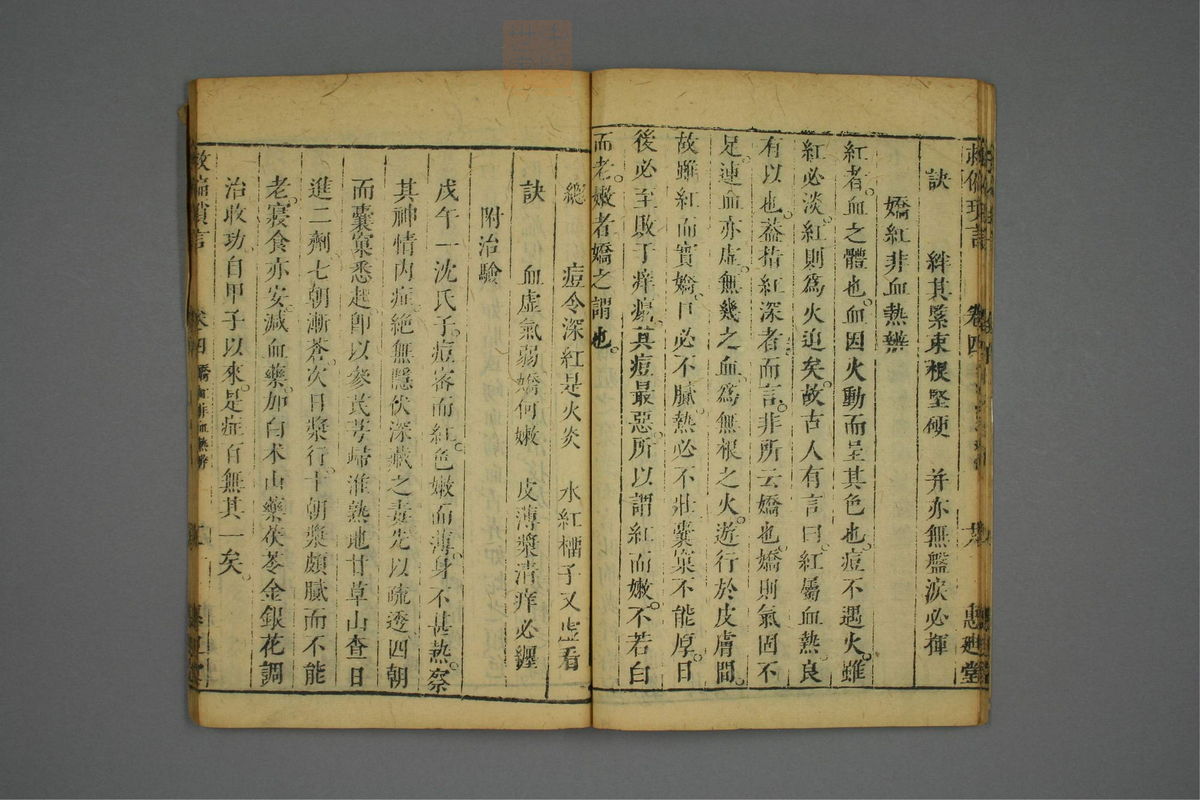 救偏瑣言 卷四 惠迪堂
訣 絆其緊束根堅硬 幷亦無盤淚必揮
嬌紅非血熱辨
紅者血之體也血因火動而呈其色也痘不遇火雖
紅必淡紅則爲火迫矣故古人有言曰紅屬血熱良
有以也葢指紅深者而言非所云嬌也嬌則氣固不
足連血亦虛無幾之血爲無根之火遊行於皮膚間
故雖紅而實嬌 必不臟熱必不壯囊窠不能厚日
後必至敗于痒瘍 其痘最惡所以謂紅而嫩不若白
而老嫩者嬌之謂也
總 痘令深紅是火炎 水紅櫺子又虛看
訣 血虛氣弱嬌何嫩 皮薄漿淸痒必纒
附治驗
戊午一沈氏子痘審而紅色嫩而薄身不甚熱察
其神情内症絶無隱伏深藏之毒先以疏透四朝
而囊窠悉起卽以參芪芎歸淮熟地甘草山查日
進二劑七朝漸蒼次日漿行十朝漿頗臟而不能
老寢食亦安減血藥加白术山藥茯苓金銀花調
治收功自甲子以來是症百無其一矣
救偏瑣言 卷四 嬌紅非血熱辨